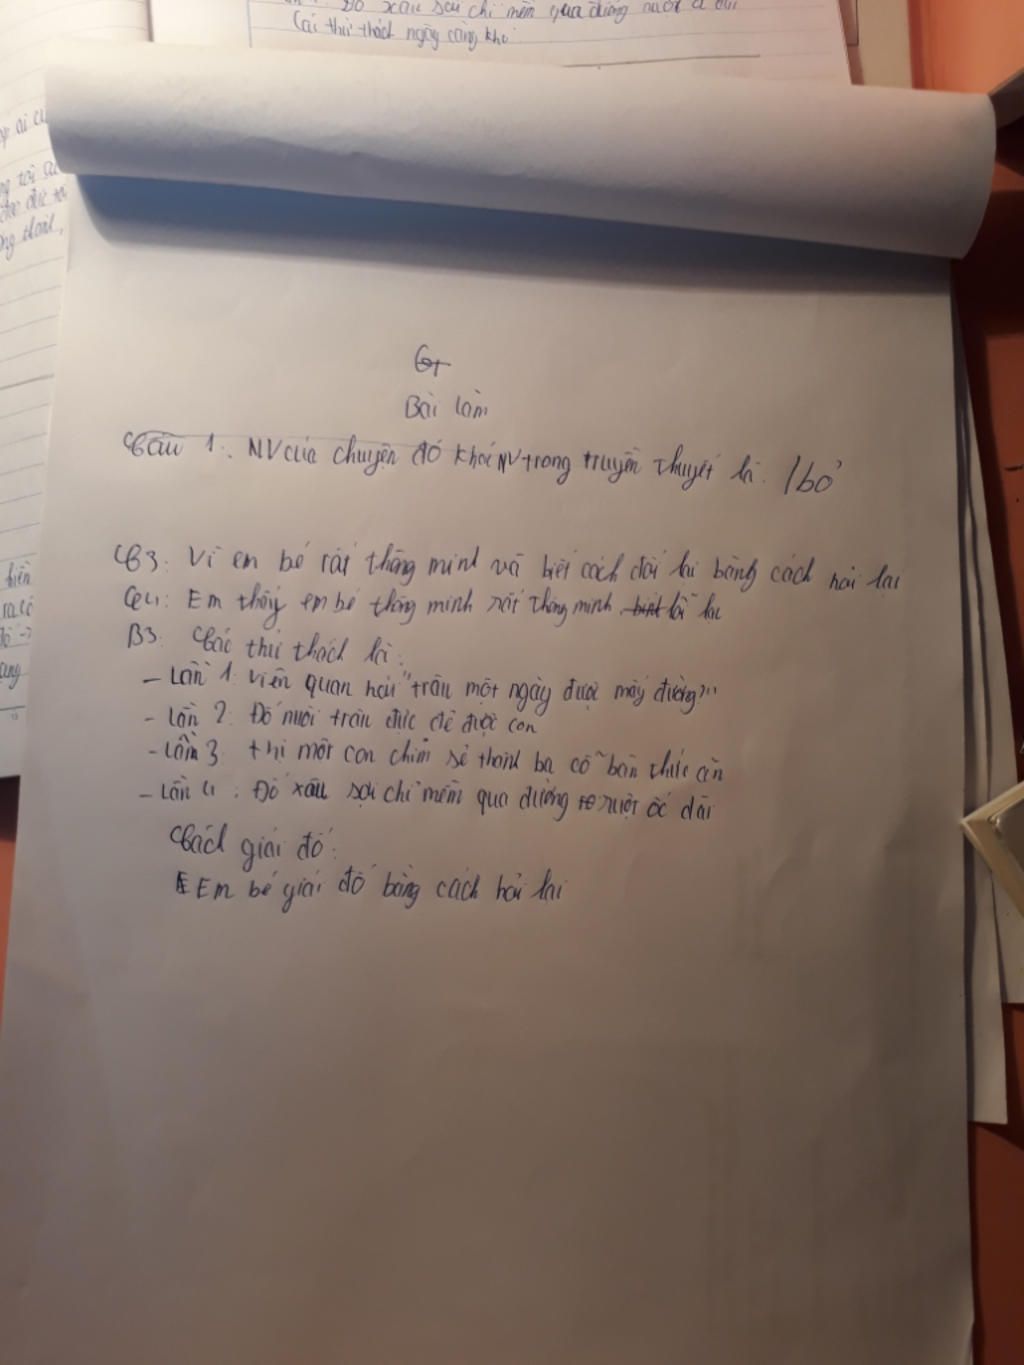 Đố xâu sợi chỉ mềm qua đường ruột ốc dài
Các thử thách ngày càng khó
Bài làm
Câu 1: NV của chuyện đó khác NV trong truyền thuyết là: / bỏ
C3: Vì em bé rất thông minh và biết cách đối lại bằng cách hỏi lại
C4: Em thấy em bé thông minh rất thông minh
B3: Các thử thách là:
- Lần 1: Viên quan hỏi "trâu một ngày được mấy đường?"
- Lần 2: Đố nuôi trâu đực đẻ được con
- Lần 3: thị một con chim sẻ thành ba cỗ bàn thức ăn
- Lần 4: Đố xâu sợi chỉ mềm qua đường ruột ốc dài
Cách giải đố:
Em bé giải đố bằng cách hỏi lại